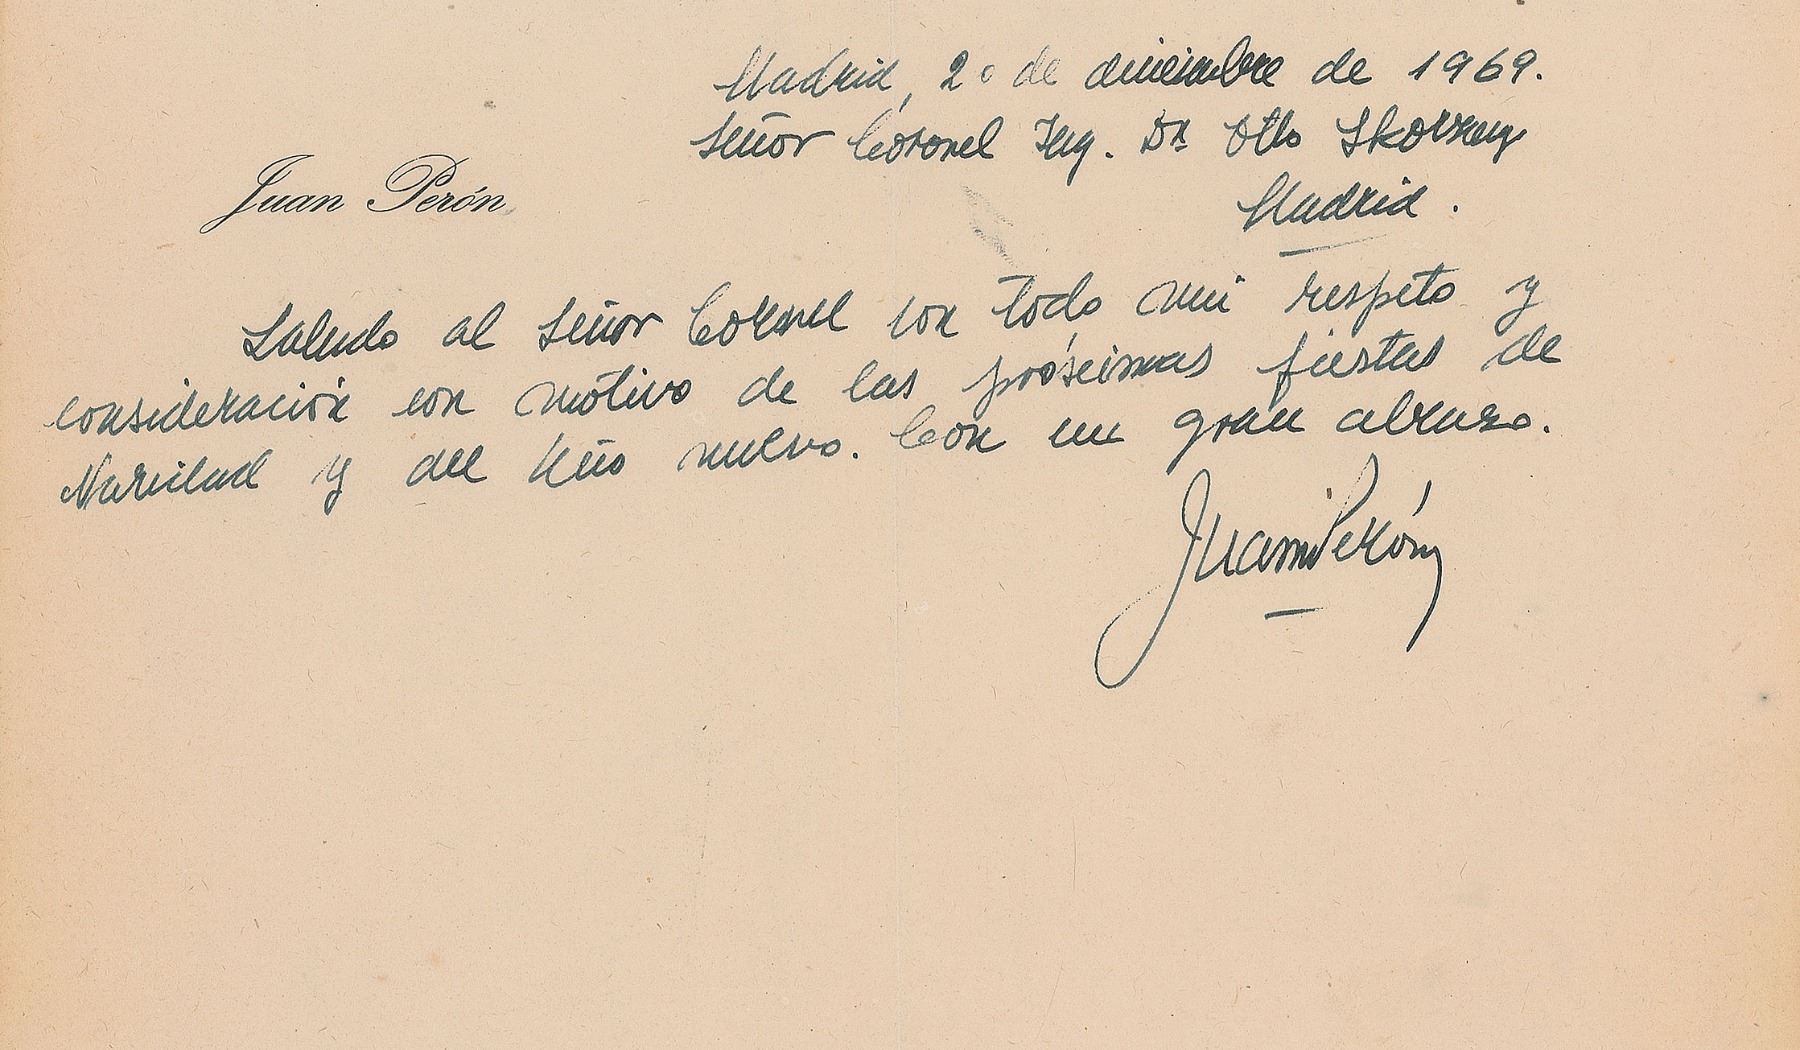 Madrid, 20 de diciembre de 1969.
Señor Coronel Ing. Dn Otto Skorzeny
Juan Perón
Madrid.
Saludo al Señor Coronel con todo mi respeto y
consideración con motivo de las próximas fiestas de
Navidad y del Año nuevo. Con un gran abrazo.
Juan Perón